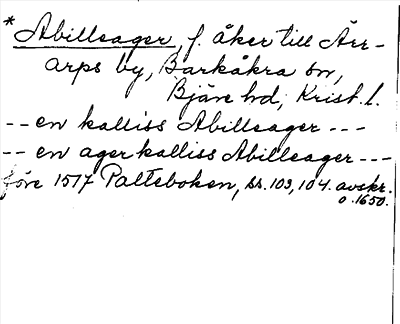 * Abilleager, f. åker till Ärr-
arps by, Barkåkra sn,
Bjäre hd, Krist. l.
-- en kalliss Abilleager ---
-- en ager kalliss Abilleager ---
före 1517 Palteboken, ss. 103, 104. avskr.
o. 1650.